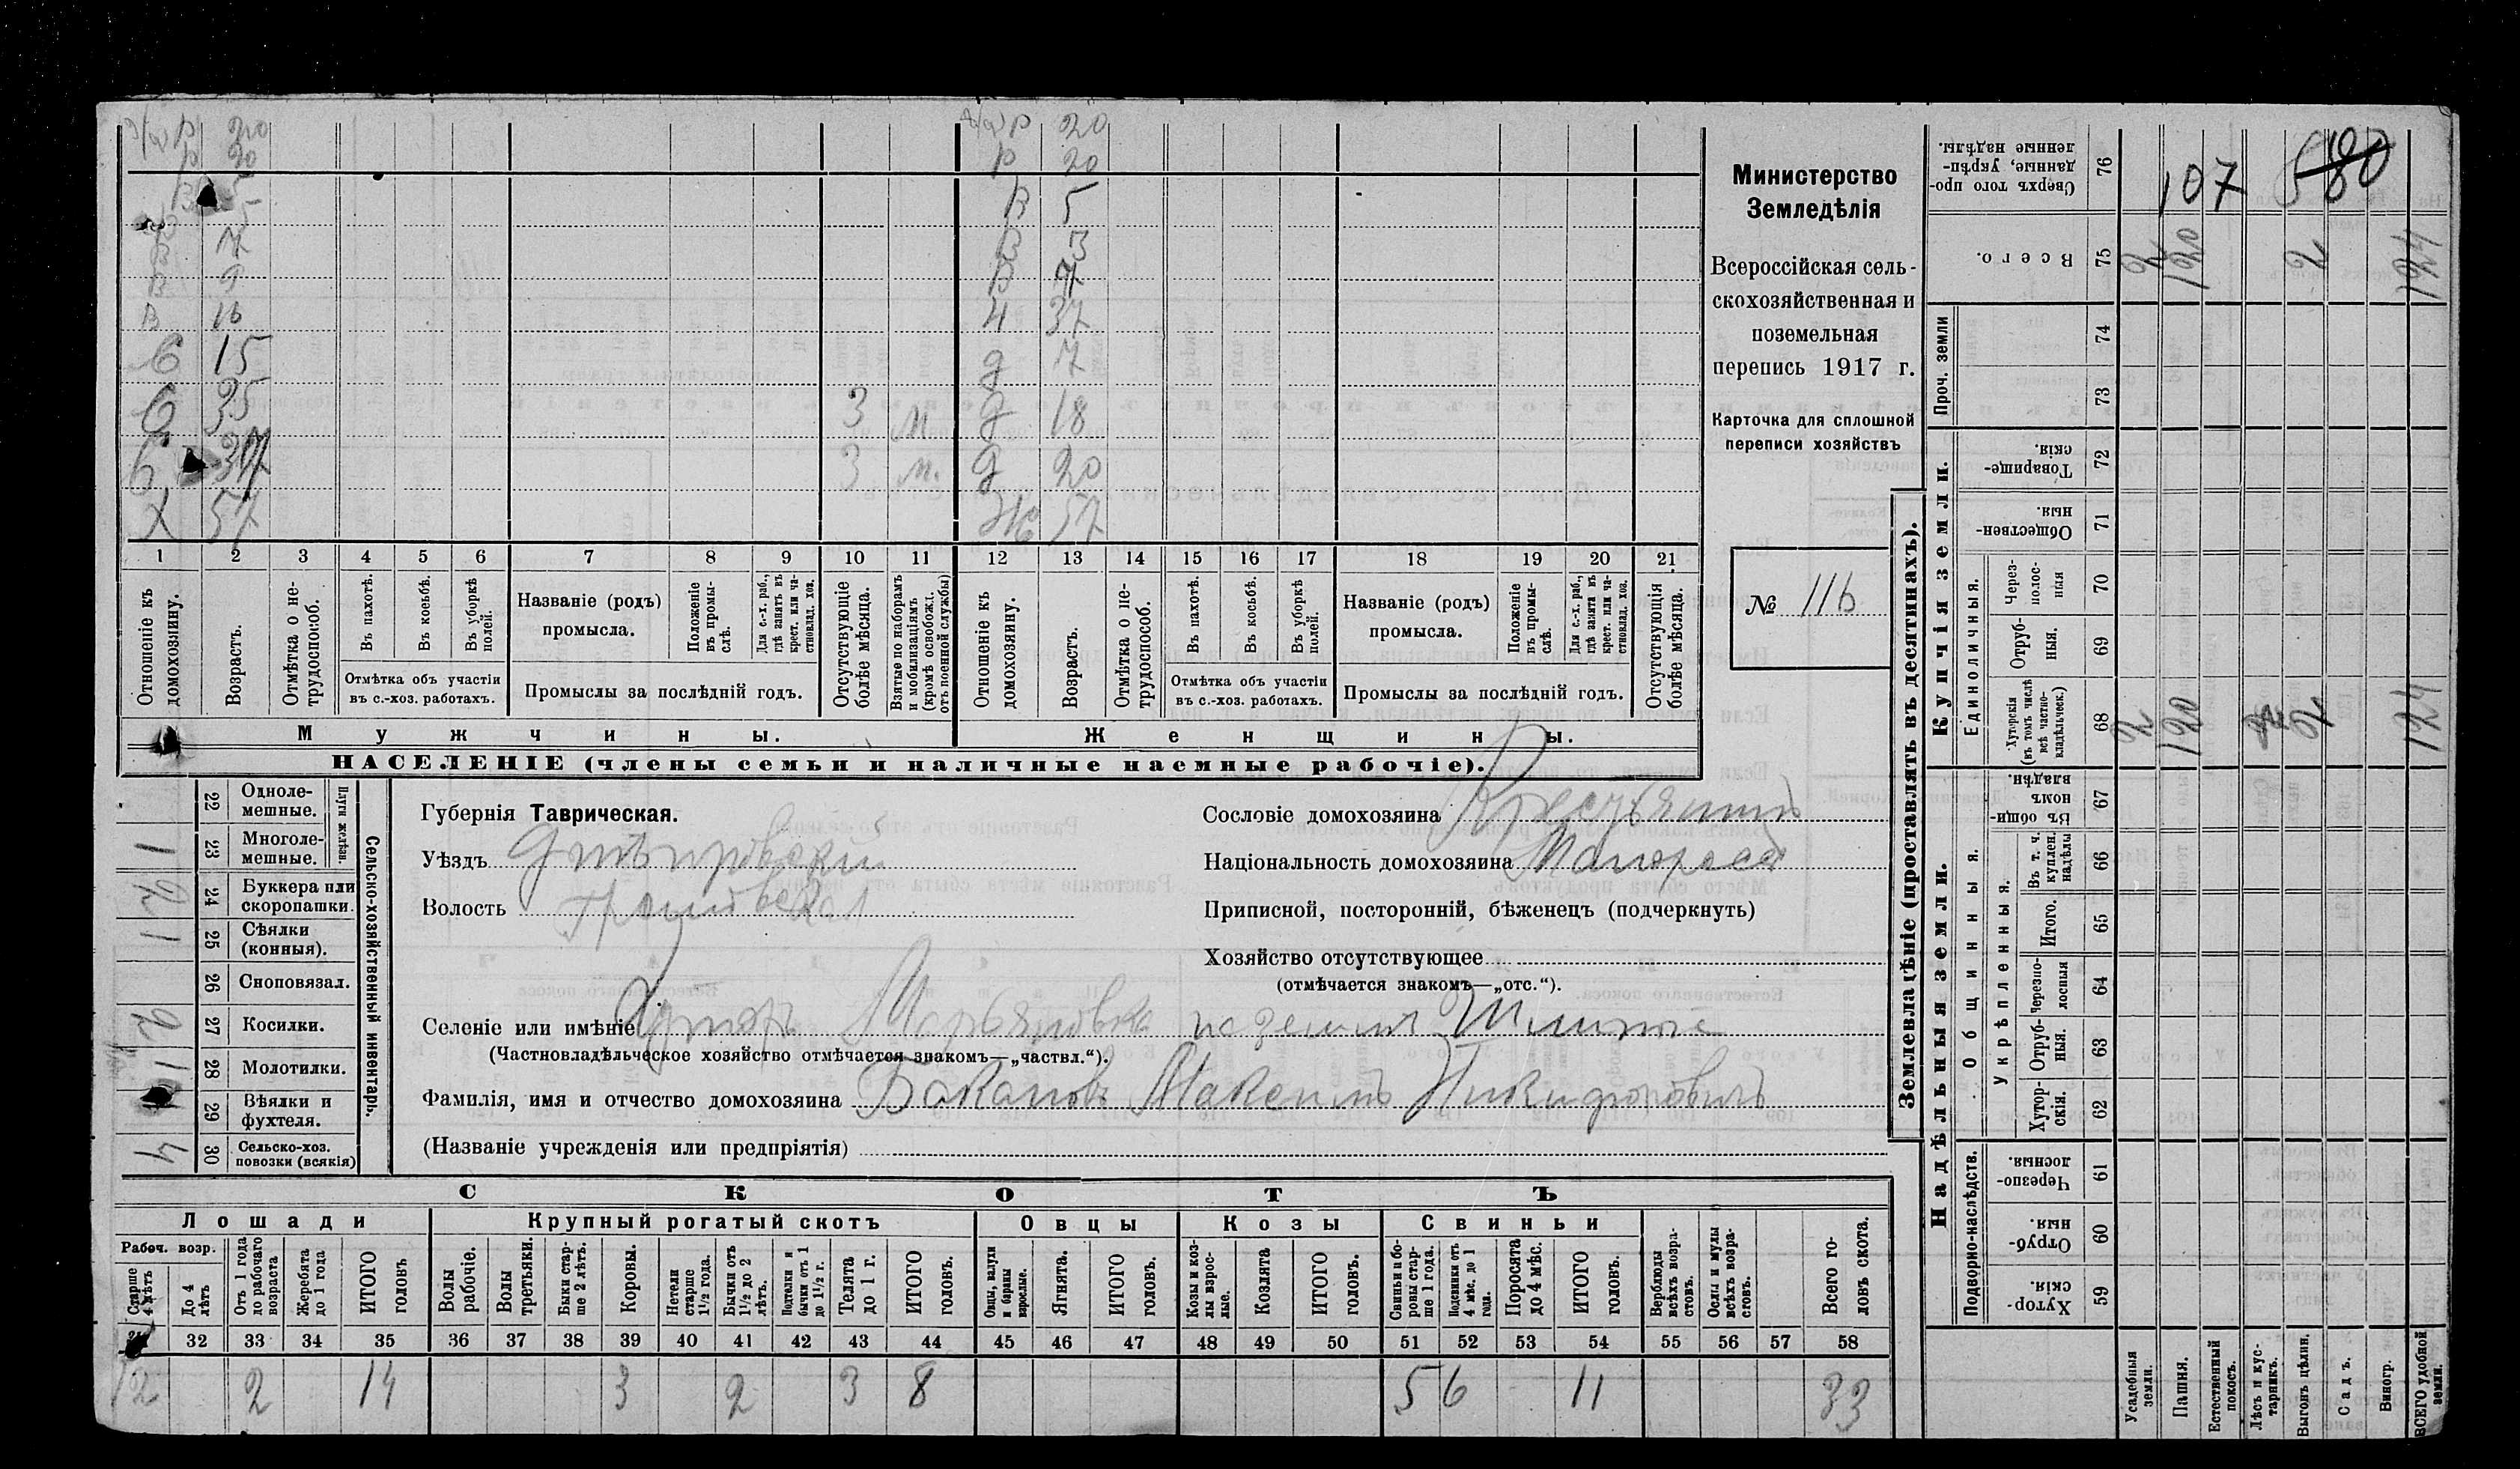 Министерство
Земледѣлія
Всероссійская сель-
скохозяйственная и
поземельная
перепись 1917 г.
Карточка для сплошной
переписи хозяйствъ
№ 116
р 20 р 20
р 20 р 20
В 5 В 5
5 В 3
В 7 В 7
В 9 Ч 37
В 16 д 7
С 15 д 18
С 35 З м д 20
С 37 З м. Ж 57
Х 57
1 2 3 4 5 6 7 8 9 10 11 12 13 14 15 16 17 18 19 20 21
Отношеніе къ домохозяину.
Возрастъ.
Отмѣтка о не-трудоспособ.
Въ пахотѣ.
Въ косьбѣ.
Въ уборкѣ полей.
Отмѣтка объ участіи въ с.-хоз. работахъ.
Названіе (родъ) промысла.
Положеніе въ промы-слѣ.
Для с.-х. раб., гдѣ занятъ въ крест. или ча-стновлад. хоз.
Промыслы за послѣдній годъ.
Отсутствующіе болѣе мѣсяца.
Взятые по наборамъ и мобилизаціямъ (кромѣ освобожд. отъ военной службы)
Отношеніе къ домохозяину.
Возрастъ.
Отмѣтка о не-трудоспособ.
Въ пахотѣ.
Въ косьбѣ.
Въ уборкѣ полей.
Отмѣтка объ участіи въ с.-хоз. работахъ.
Названіе (родъ) промысла.
Положеніе въ промы-слѣ.
Для с.-х. раб., гдѣ занята въ крест. или ча-стновлад. хоз.
Промыслы за послѣдній годъ.
Отсутствующія болѣе мѣсяца.
Мужчины. Женщины.
НАСЕЛЕНІЕ (члены семьи и наличные наемные рабочіе).
Сельско-хозяйственный инвентарь.
Плуги желѣзн.
22 Одноле-мешные.
1 23 Многоле-мешные.
2 24 Буккера или скоропашки.
1 25 Сѣялки (конныя).
26 Сноповязал.
2 27 Косилки.
1 28 Молотилки.
29 Вѣялки и фухтеля.
4 30 Сельско-хоз. повозки (всякія)
Губернія Таврическая.
Уѣздъ Днѣпровскій
Волость
Сословіе домохозяина Крестьянинъ
Національность домохозяина Малороссъ
Приписной, посторонній, бѣженецъ (подчеркнуть)
Хозяйство отсутствующее
(отмѣчается знакомъ—„отс.“).
Селеніе или имѣніе Хуторъ Марьяновка на земли
(Частновладѣльческое хозяйство отмѣчается знакомъ—„частвл.“).
Фамилія, имя и отчество домохозяина Бакановъ Максимъ Никифоровичъ
(Названіе учрежденія или предпріятія)
СКОТЪ
Лошади Крупный рогатый скотъ Овцы Козы Свиньи
Рабоч. возр.
Старше 4 лѣтъ
До 4 лѣтъ
Отъ 1 года до рабочаго возраста
Жеребята до 1 года
ИТОГО головъ
Волы рабочіе.
Волы третьяки.
Быки стар-ше 2 лѣтъ.
Коровы.
Нетели старше 1½ года.
Бычки отъ 1½ до 2 лѣтъ.
Подтелки и бычки отъ 1 до 1½ г.
Телята до 1 г.
ИТОГО головъ.
Овцы, валухи и бараны взрослые.
Ягнята.
ИТОГО головъ.
Козы и коз-лы взрос-лые.
Козлята
ИТОГО головъ.
Свиньи и бо-ровы стар-ше 1 года.
Подсвинки отъ 4 мѣс. до 1 года.
Поросята до 4 мѣс.
ИТОГО головъ.
Верблюды всѣхъ возра-стовъ.
Ослы и мулы всѣхъ возра-стовъ.
Всего го-ловъ скота.
32 33 34 35 36 37 38 39 40 41 42 43 44 45 46 47 48 49 50 51 52 53 54 55 56 57 58
12 2 14 3 2 3 8 5 6 11 33
Землевладѣніе (проставлять въ десятинахъ).
Надѣльныя земли. Купчія земли. Проч. земли
Подворно-наслѣдств.
Общинныя.
Укрѣпленныя.
Единоличныя.
Сверхъ того про-данные, укрѣп-ленные надѣлы. 76 107 580
Всего. 75 2 120 2 124
74
73
Товарище-скія. 72
Обществен-ныя. 71
Через-полос-ныя 70
Отруб-ныя. 69
Хуторскія (въ томъ числѣ всѣ частно-владѣльческ.) 68 2 120 2 124
Въ общин-номъ владѣн. 67
Въ т. ч. куплен. надѣлы 66
Итого. 65
Черезпо-лосныя 64
Отруб-ныя. 63
Хутор-скія. 62
Черезпо-лосныя. 61
Отруб-ныя. 60
Хутор-скія. 59
Усадебныя земли.
Пашня.
Естественный покосъ.
Лѣсъ и кус-тарникъ.
Выгонъ цѣлин.
Садъ.
Виногр.
ВСЕГО удобной земли.